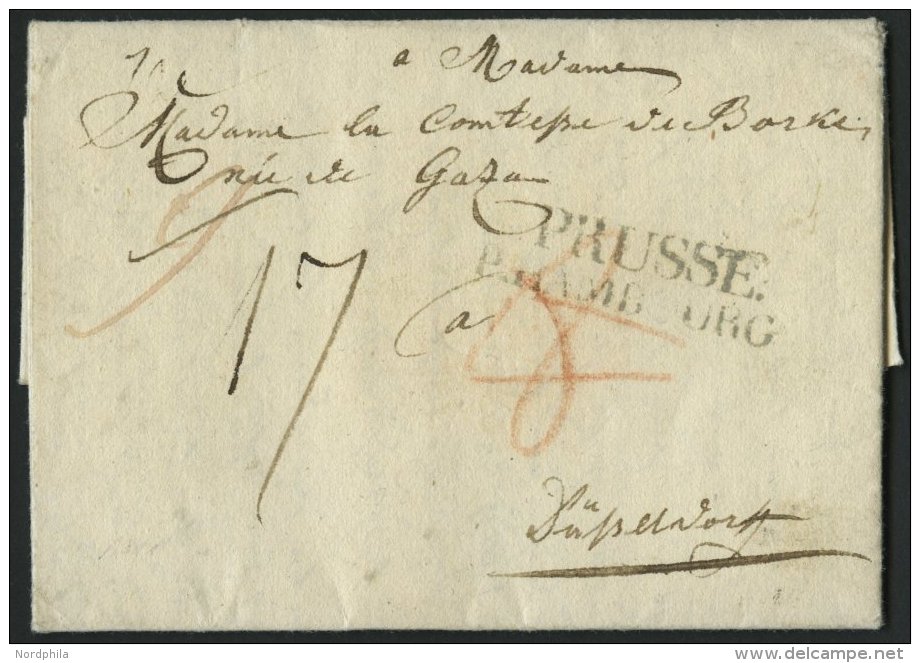 a Madame
Madame la Comtesse de Borke
née de Gaza
PRUSSE.
P. HAMBOURG
17
a
Düsseldorff
Nordphila
delcampe.net